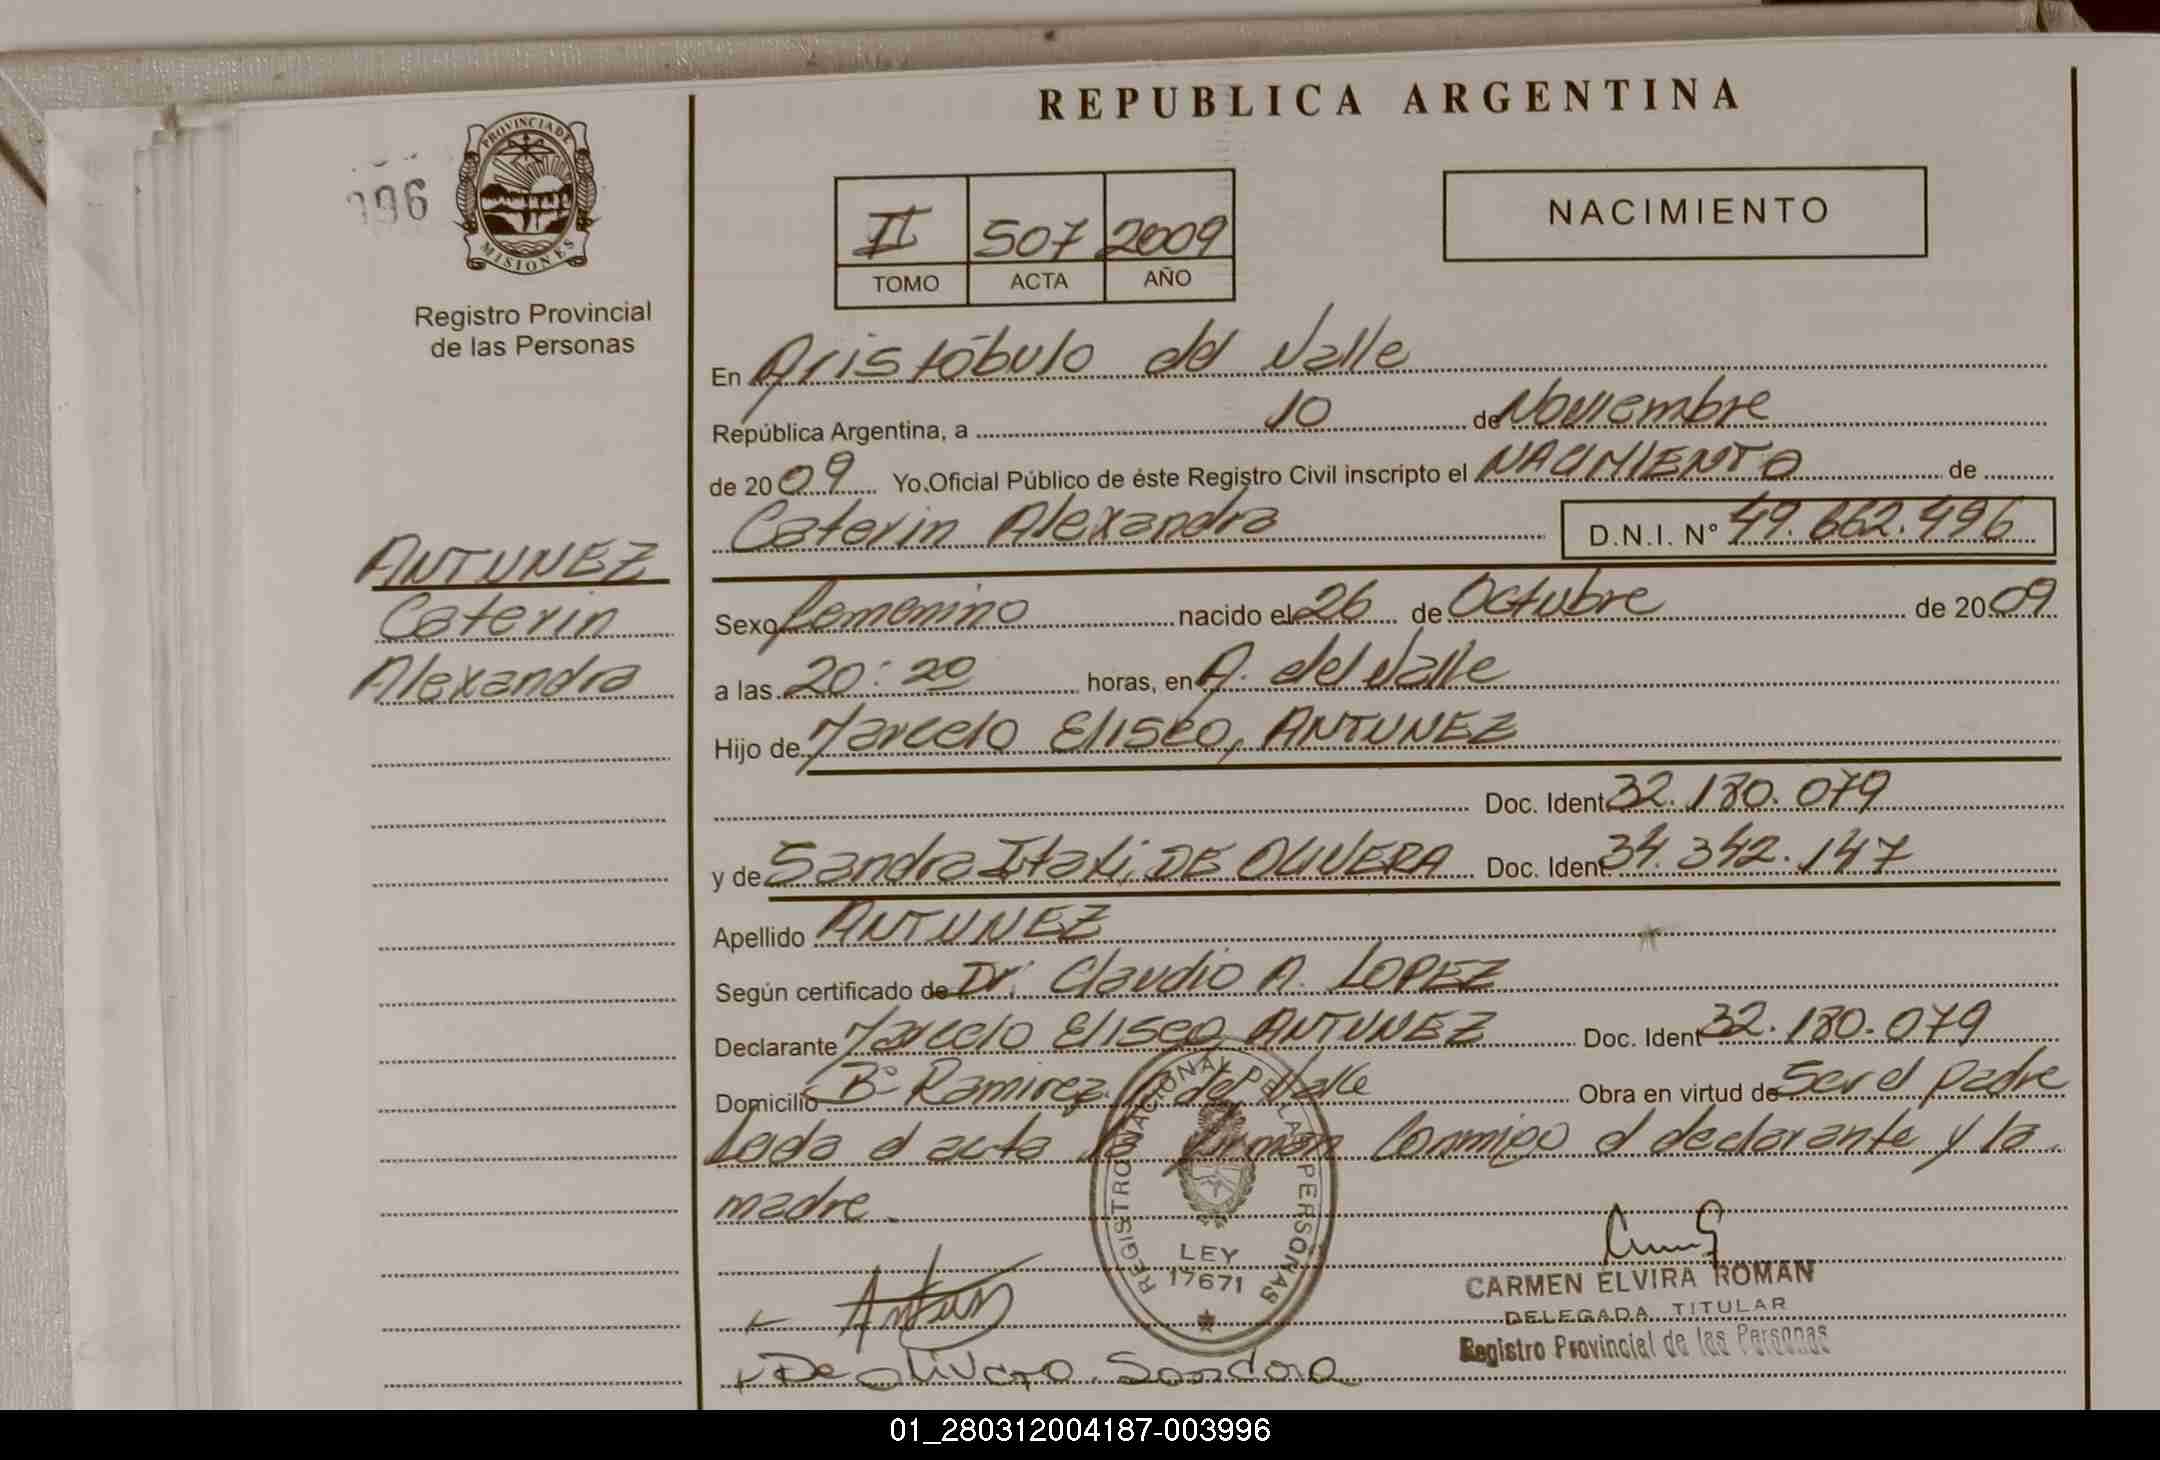 REPUBLICA ARGENTINA
PROVINCIA DE
MISIONES
Registro Provincial
de las Personas
II 507 2009
TOMO ACTA AÑO
NACIMIENTO
En Aristóbulo del Valle
República Argentina, a 10 de Noviembre
de 2009 Yo, Oficial Público de éste Registro Civil inscripto el NACIMIENTO de
Caterin Alexandra D.N.I. N° 49.662.496
ANTUNEZ
Caterin
Alexandra
Sexo femenino nacido el 26 de Octubre de 2009
a las 20:20 horas, en A. del Valle
Hijo de Marcelo Eliseo, ANTUNEZ
Doc. Ident 32.180.079
y de Sandra Itati, DE OLIVERA Doc. Ident 34.342.147
Apellido ANTUNEZ
Según certificado de Dr. Claudio A. LOPEZ
Declarante Marcelo Eliseo ANTUNEZ Doc. Ident 32.180.079
Domicilio B° Ramirez A. del Valle Obra en virtud de Ser el padre
Leida el acta la firman Conmigo el declarante y la
madre.
REGISTRO NACIONAL DE LAS PERSONAS
LEY
17671
CARMEN ELVIRA ROMAN
DELEGADA TITULAR
Registro Provincial de las Personas
De olivera Sandra
01_280312004187-003996